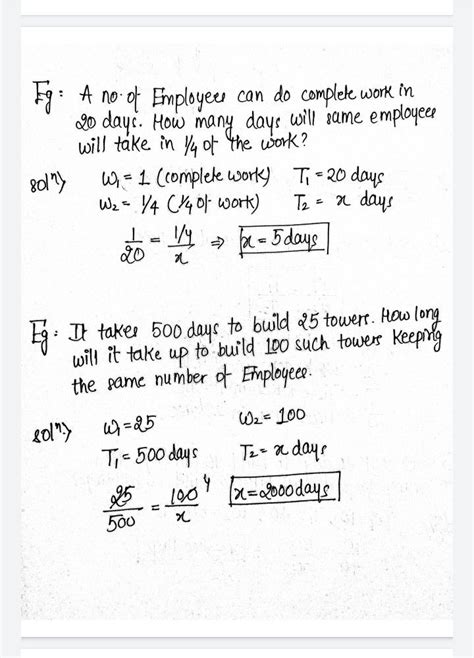 Eg: A no. of Employees can do complete work in
20 days. How many days will same employees
will take in 1/4 of the work?
solⁿ) W₁ = 1 (complete work) T₁ = 20 days
W₂ = 1/4 (1/4 of work) T₂ = x days
1/20 = 1/4/x ⇒ x = 5 days
Eg: It takes 500 days to build 25 towers. How long
will it take up to build 100 such towers keeping
the same number of Employees.
solⁿ) W₁ = 25 W₂ = 100
T₁ = 500 days T₂ = x days
25/500 = 100/x 4 x = 2000 days